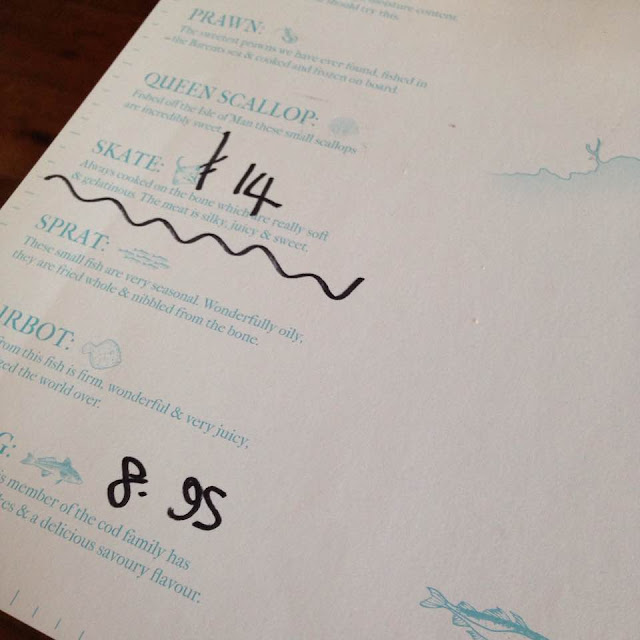 should try this.
PRAWN:
The sweetest prawns we have ever found, fished in
the Barents sea & cooked and frozen on board.
QUEEN SCALLOP:
Fished off the Isle of Man these small scallops
are incredibly sweet.
SKATE:
14
Always cooked on the bone which are really soft
& gelatinous. The meat is silky, juicy & sweet.
SPRAT:
These small fish are very seasonal. Wonderfully oily,
they are fried whole & nibbled from the bone.
RBOT:
from this fish is firm, wonderful & very juicy,
the world over.
G:
8.95
s member of the cod family has
& a delicious savoury flavour.